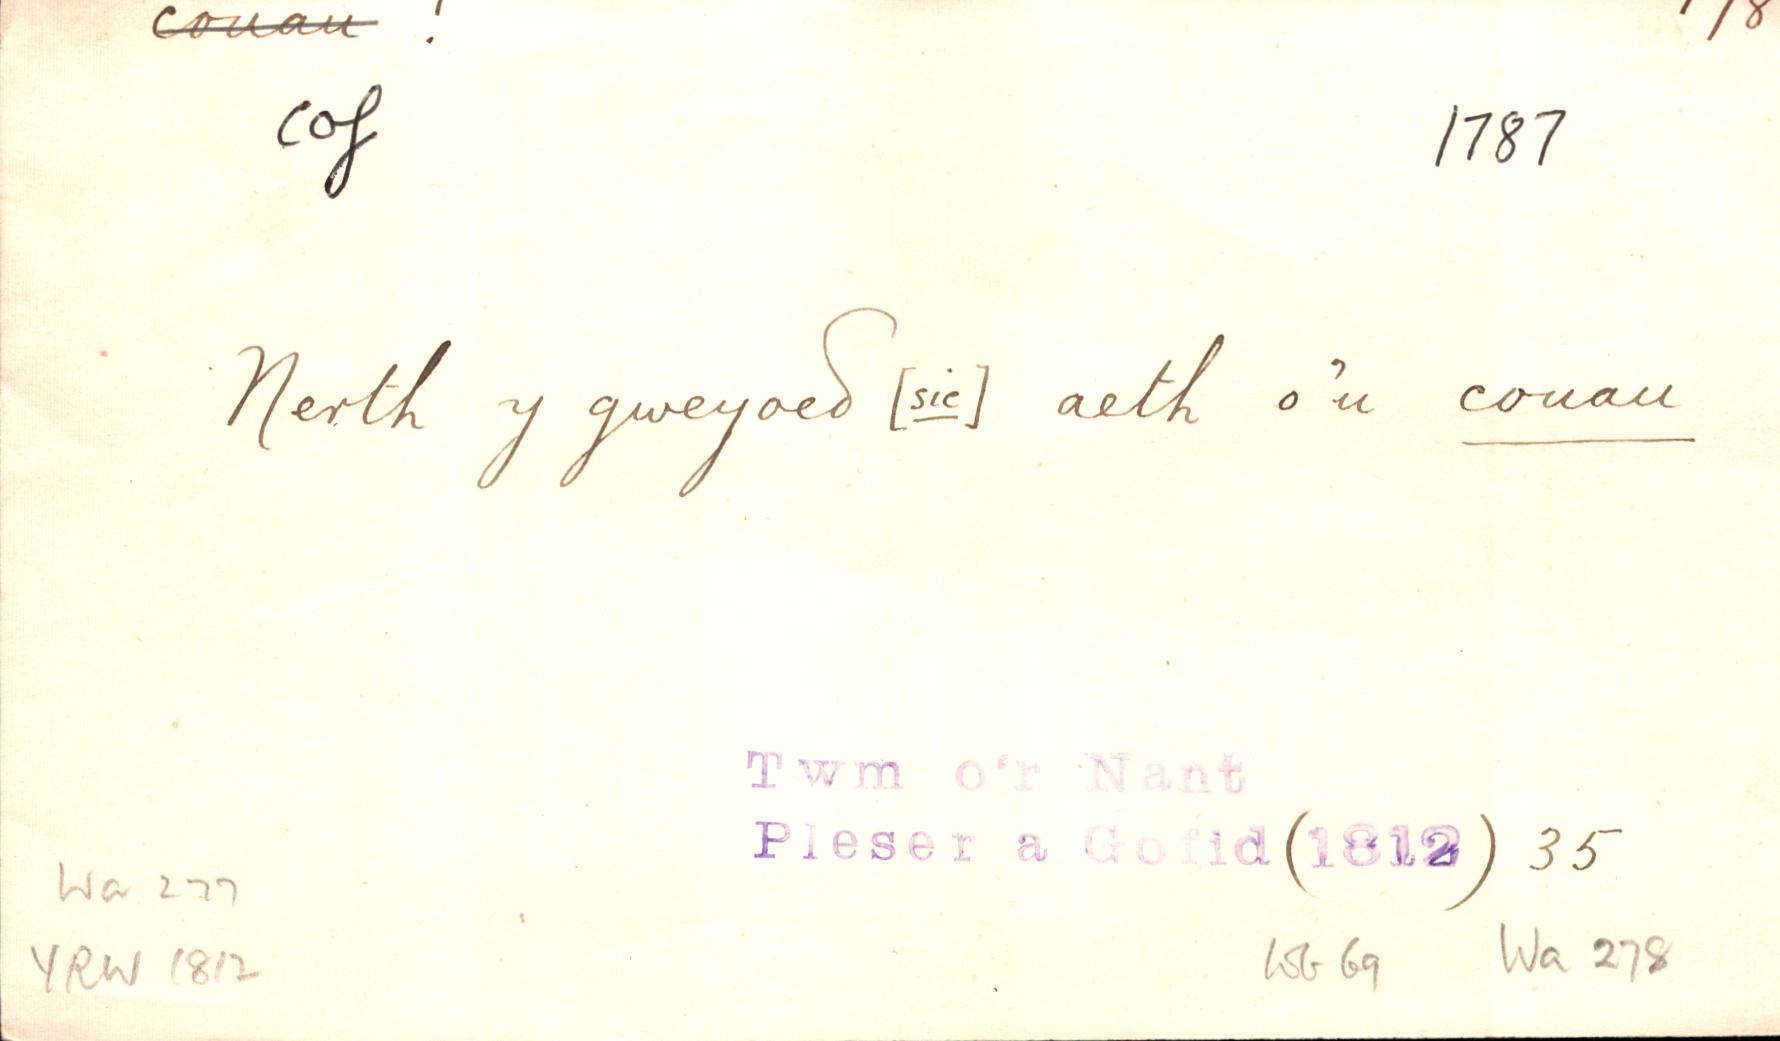 couau !
cof 1787
Nerth y gweyoeδ [sic] aeth o'u couau
Twm o'r Nant
Pleser a Gofid (1812) 35
Wa 277
YRW 1812 69 Wa 278